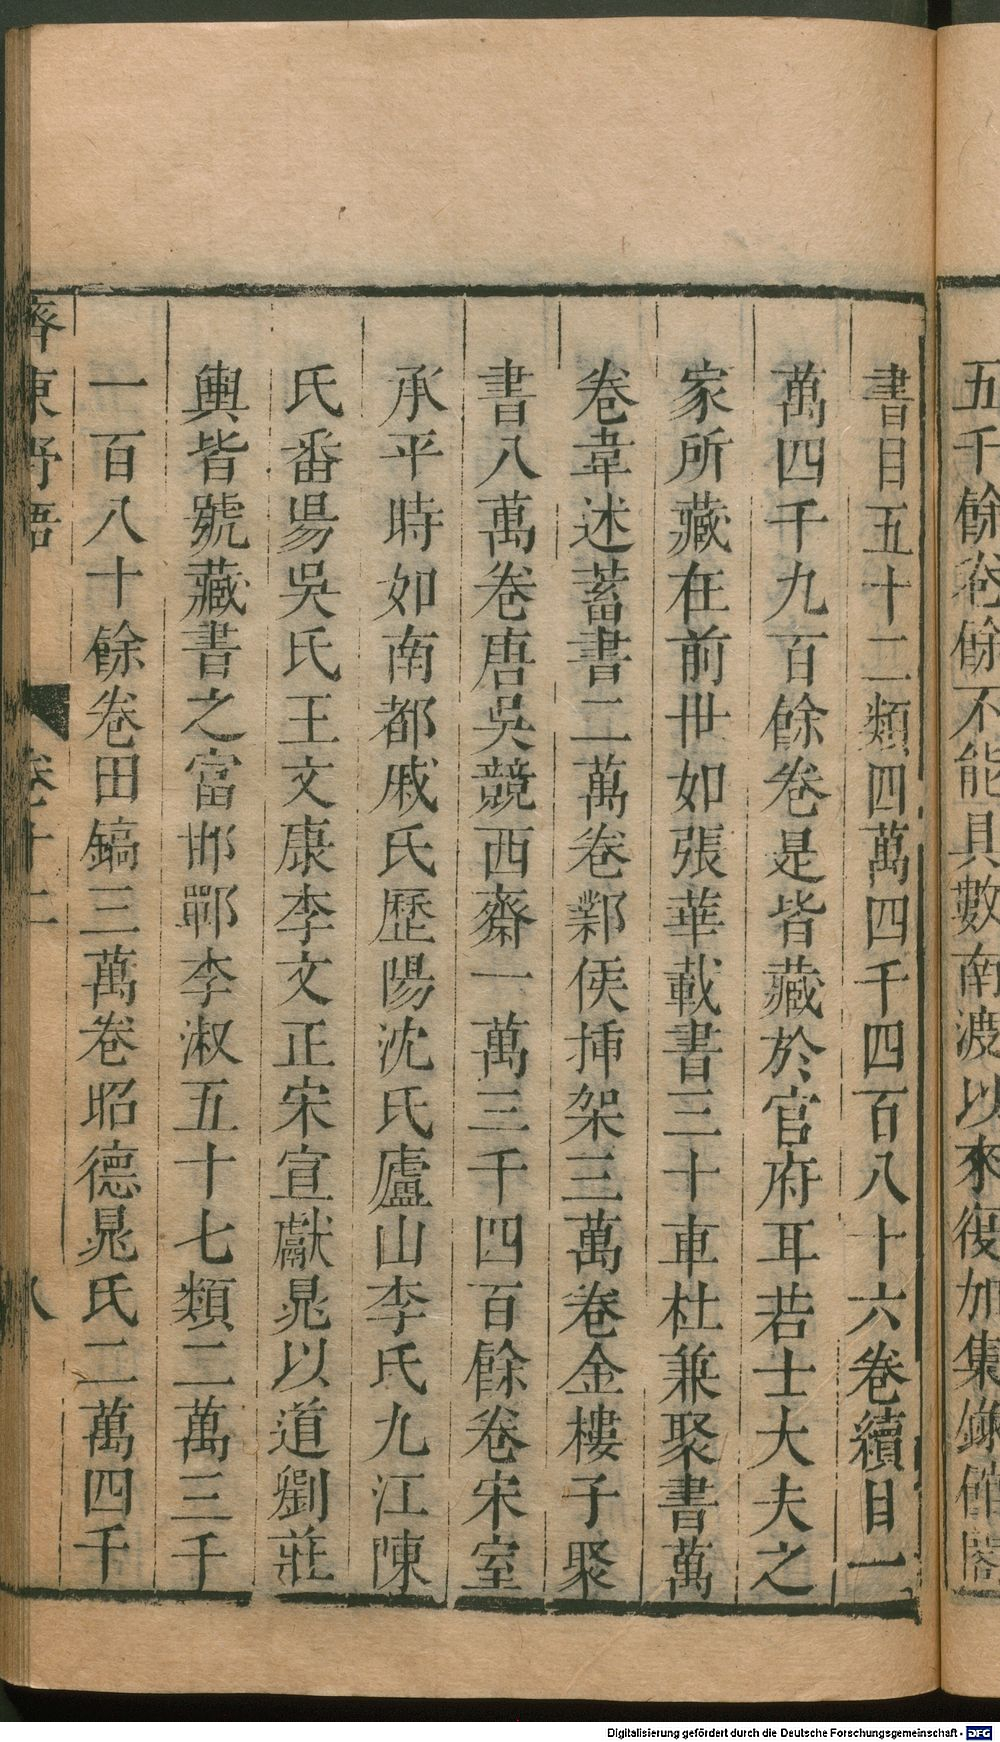 五千餘卷餘不能具數南渡以來復加集錄館閣
書目五十二類四萬四千四百八十六卷續目一
萬四千九百餘卷是皆藏於官府耳若士大夫之
家所藏在前世如張華載書三十車杜兼聚書萬
卷韋述蓄書二萬卷鄴侯揷架三萬卷金樓子聚
書八萬卷唐吳競西齋一萬三千四百餘卷宋室
承平時如南都戚氏歷陽沈氏廬山李氏九江陳
氏番昜吳氏王文康李文正宋宣獻晁以道劉莊
輿皆號藏書之富邯鄲李淑五十七類二萬三千
一百八十餘卷田鎬三萬卷昭德晁氏二萬四千
齊東野語 卷十二 八
Digitalisierung gefördert durch die Deutsche Forschungsgemeinschaft - DFG